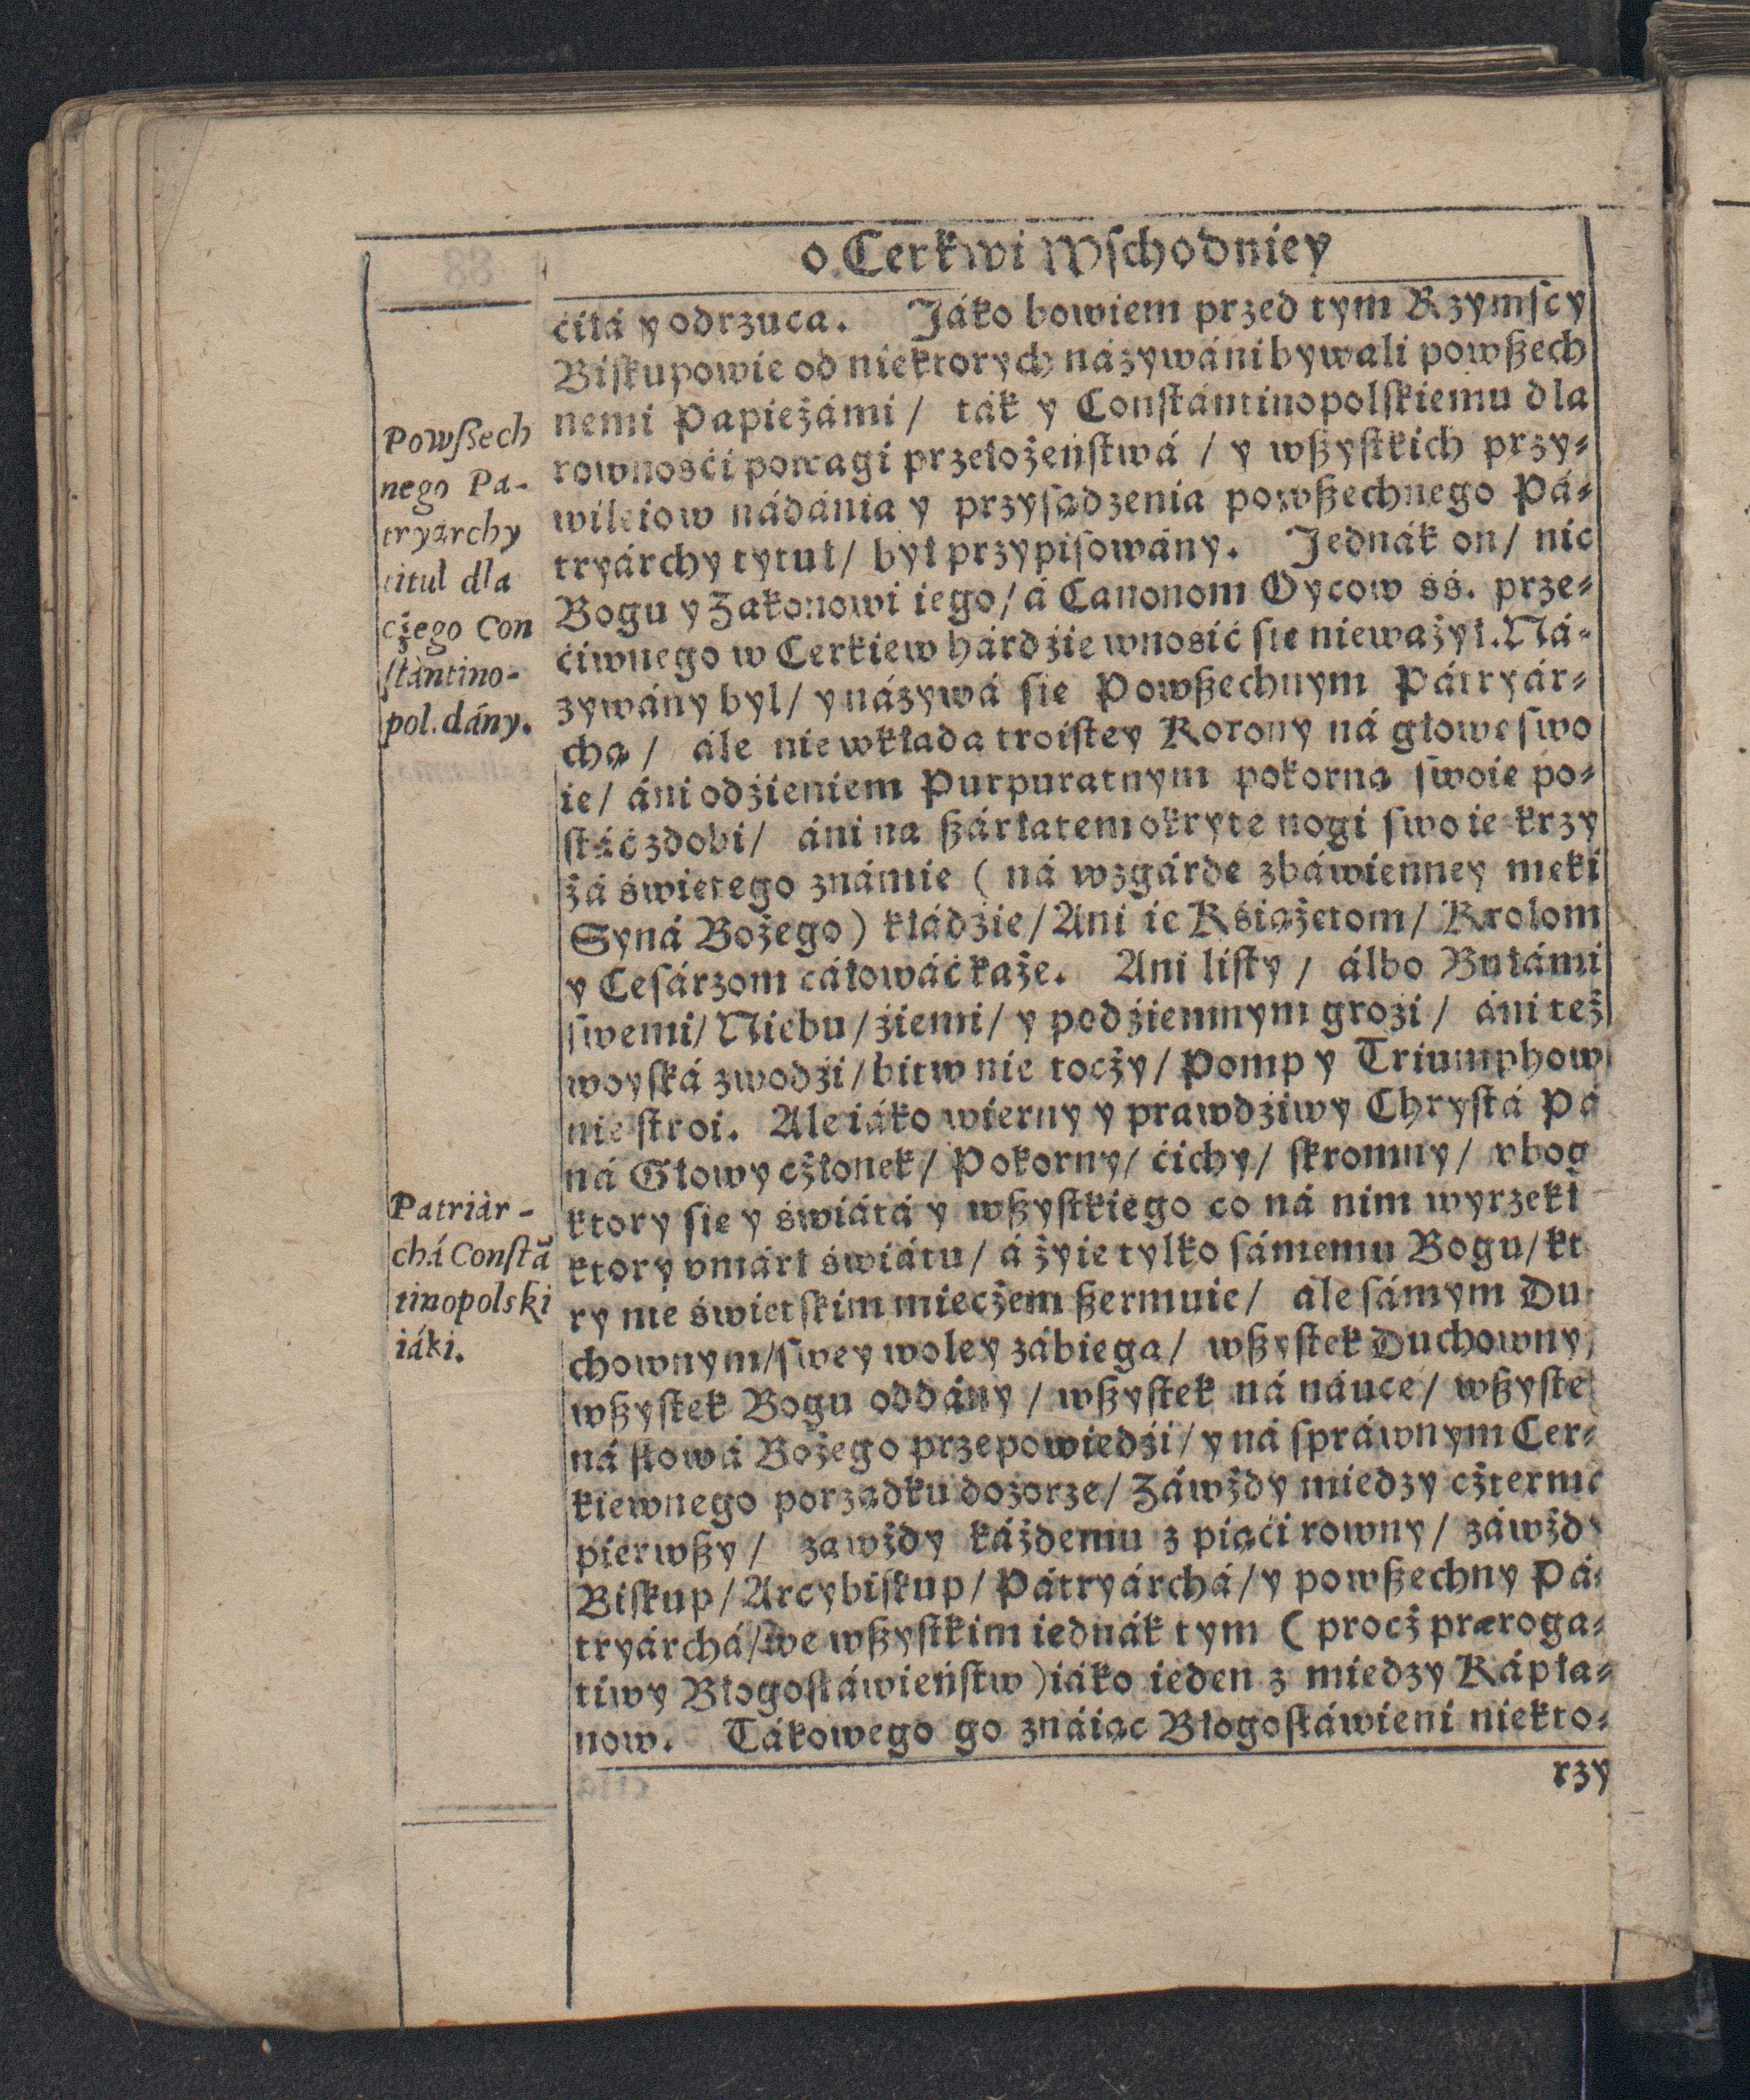 o Cerkwi Wſchodniey
ćiłá y odrzuca. Jáko bowiem przed tym Rzymſcy
Biſkupowie od niektorych názywáni bywali powßech
nemi Papieżámi / ták y Conſtántinopolſkiemu dla
rownośći powagi przełożeńſtwá / y wßyſtkich przy⸗
wileiow nádánia y przyſądzenia powßechnego Pá⸗
tryárchy tytuł / był przypiſowány. Jednák on / nic
Bogu y Zakonowi iego / á Canonom Oycow śś. prze⸗
ćiwnego w Cerkiew hárdźie wnośić ſie nieważył. Ná⸗
zywány był / y názywá ſie Powßechnym Pátryár⸗
chą / ále nie wkłada troiſtey Korony ná głowę ſwo
ię / áni odźieniem Purpuratnym pokorną ſwoię po⸗
ſtáć zdobi / áni na ßárłatem okryte nogi ſwoie krzy
żá świętego známię ( ná wzgárdę zbáwienney męki
Syná Bożego ) kłádźie / Ani ie Kśiążętom / Krolom
y Ceſárzom cáłowáć każe. Ani liſty / álbo Bullámi
ſwemi / Niebu / źiemi / y podźiemnym groźi / áni też
woyſká zwodźi / bitw nie tocży / Pomp y Triumphow
nie ſtroi. Ale iáko wierny y prawdźiwy Chryſtá Pá
ná Głowy cżłonek / Pokorny / ćichy / ſkromny / vbog
ktory ſie y świátá y wßyſtkiego co ná nim wyrzekł
ktory vmárł świátu / á żyie tylko ſámemu Bogu / kt
ry nie świetſkim miecżem ßermuie / ale ſámym Du
chownym / ſwey woley zábiega / wßyſtek Duchowny /
wßyſtek Bogu oddány / wßyſtek ná náuce / wßyſte
ná ſłowá Bożego przepowiedźi / y ná ſpráwnym Cer⸗
kiewnego porządku dozorze / Záwżdy miedzy cżterm
pierwßy / zawżdy káżdemu z piąći rowny / záwżdy
Biſkup / Arcybiſkup / Pátryárchá / y powßechny Pá⸗
tryárchá / we wßyſtkim iednák tym ( procż præroga⸗
tiwy Błogoſłáwieńſtw ) iáko ieden z miedzy Kápła⸗
now. Tákowego go znáiąc Błogoſłáwieni niekto⸗
rzy
Powſſech
nego Pa-
tryárchy
titul dla
cżego Con
ſtàntino-
pol. dány.
Patriàr-
chá Conſtã
tinopolski
iáki.